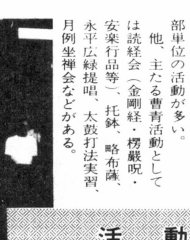 部単位の活動が多い。
他、主たる曹青活動として
は読経会（金剛経・楞嚴呪・
安楽行品等）、托鉢、略布薩、
永平広録提唱、太鼓打法実習、
月例坐禅会などがある。
活動